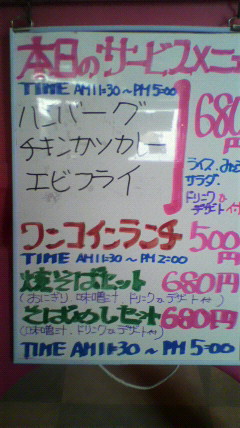 本日のサービスメニュ
TIME AM11:30~PM5:00
ハンバーグ
チキンカツカレー
エビフライ
680円
ライス、みそ
サラダ、
ドリンク&
デザート付
ワンコインランチ 500円
TIME AM11:30~PM2:00
焼そばセット 680円
(おにぎり、味噌汁、ドリンク&デザート付)
そばめしセット 680円
(味噌汁、ドリンク&デザート付)
TIME AM11:30~PM5:00